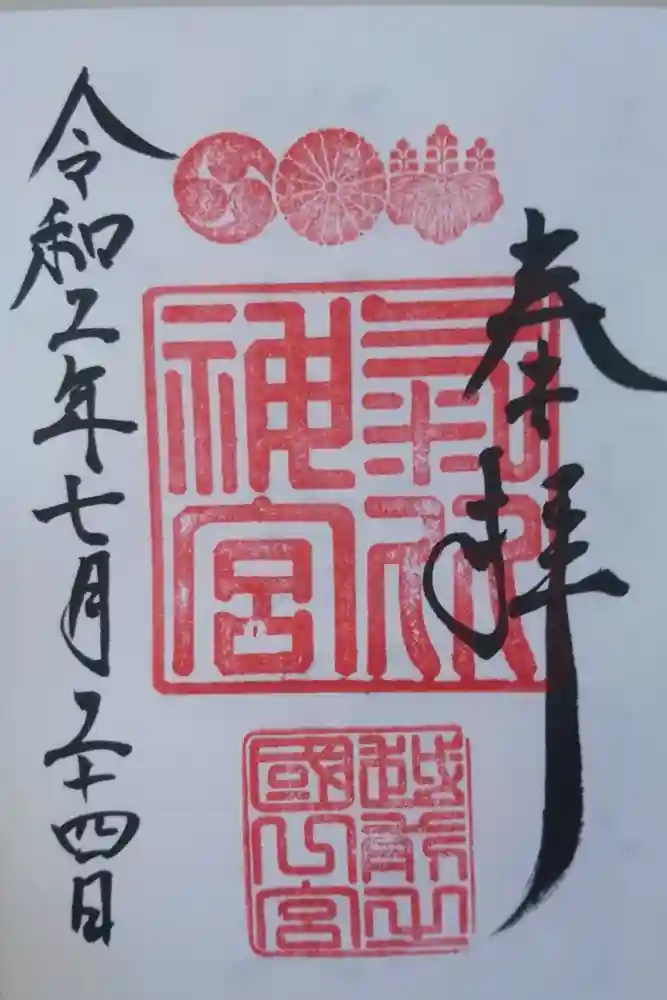 奉拝
氣比
神宮
越前之
國 宮
令和二年七月二十四日